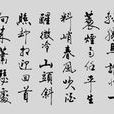 蓑煙雨任平生
料峭春風吹酒
醒微冷山頭斜
照却相迎回首
向来蕭瑟處